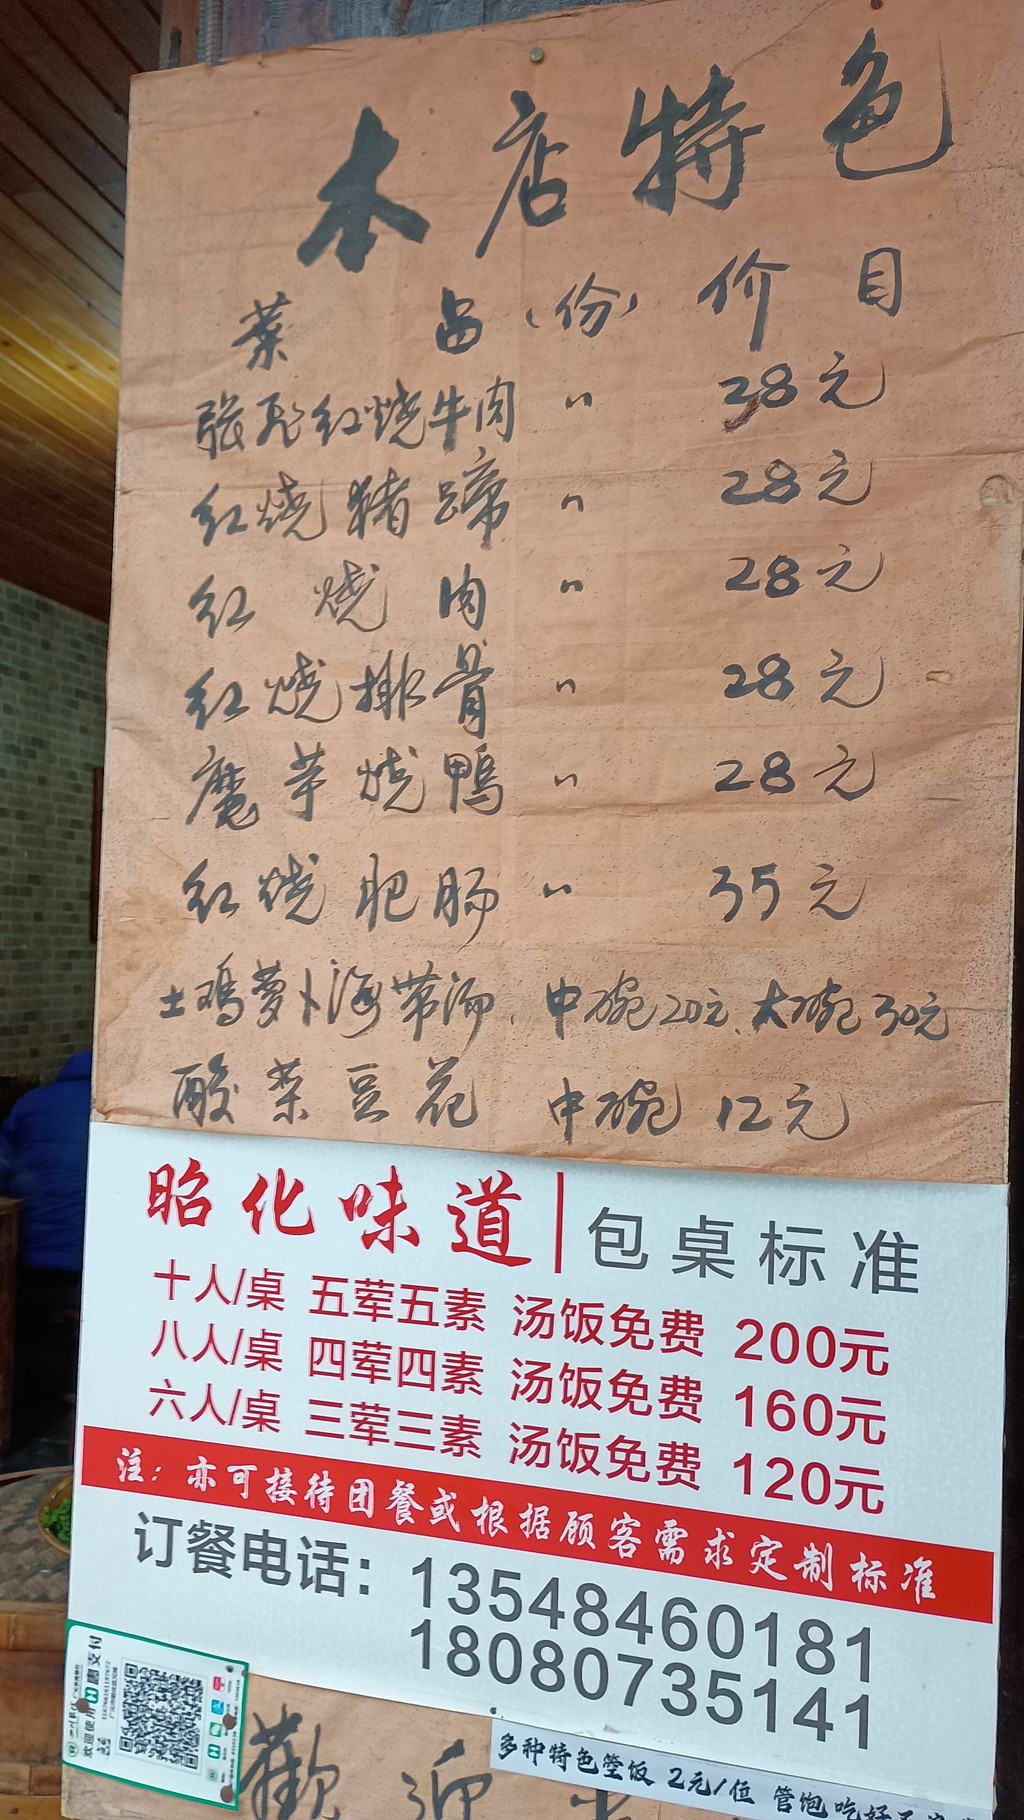 本店特色
菜品(份) 价目
張飛红燒牛肉 〃 28元
红燒猪蹄 〃 28元
红燒肉 〃 28元
红燒排骨 〃 28元
魔芋燒鸭 〃 28元
红燒肥肠 〃 35元
土鸡萝卜海带汤. 中碗20元、大碗30元
酸菜豆花 中碗 12元
昭化味道|包桌标准
十人/桌 五荤五素 汤饭免费 200元
八人/桌 四荤四素 汤饭免费 160元
六人/桌 三荤三素 汤饭免费 120元
注：亦可接待团餐或根据顾客需求定制标准
订餐电话：13548460181
18080735141
欢迎使用惠支付
歡迎
多种特色箜饭 2元/位 管饱吃好